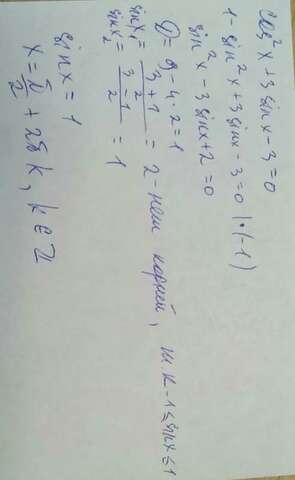 cos²x+3sinx-3=0
1-sin²x+3sinx-3=0 |·(-1)
sin²x-3sinx+2=0
D=9-4·2=1
sinx₁=\frac{3+1}{2}=2-нет корней, тк -1≤sinx≤1
sinx₂=\frac{3-1}{2}=1
sinx=1
x=\frac{π}{2}+2πk, k∈Z